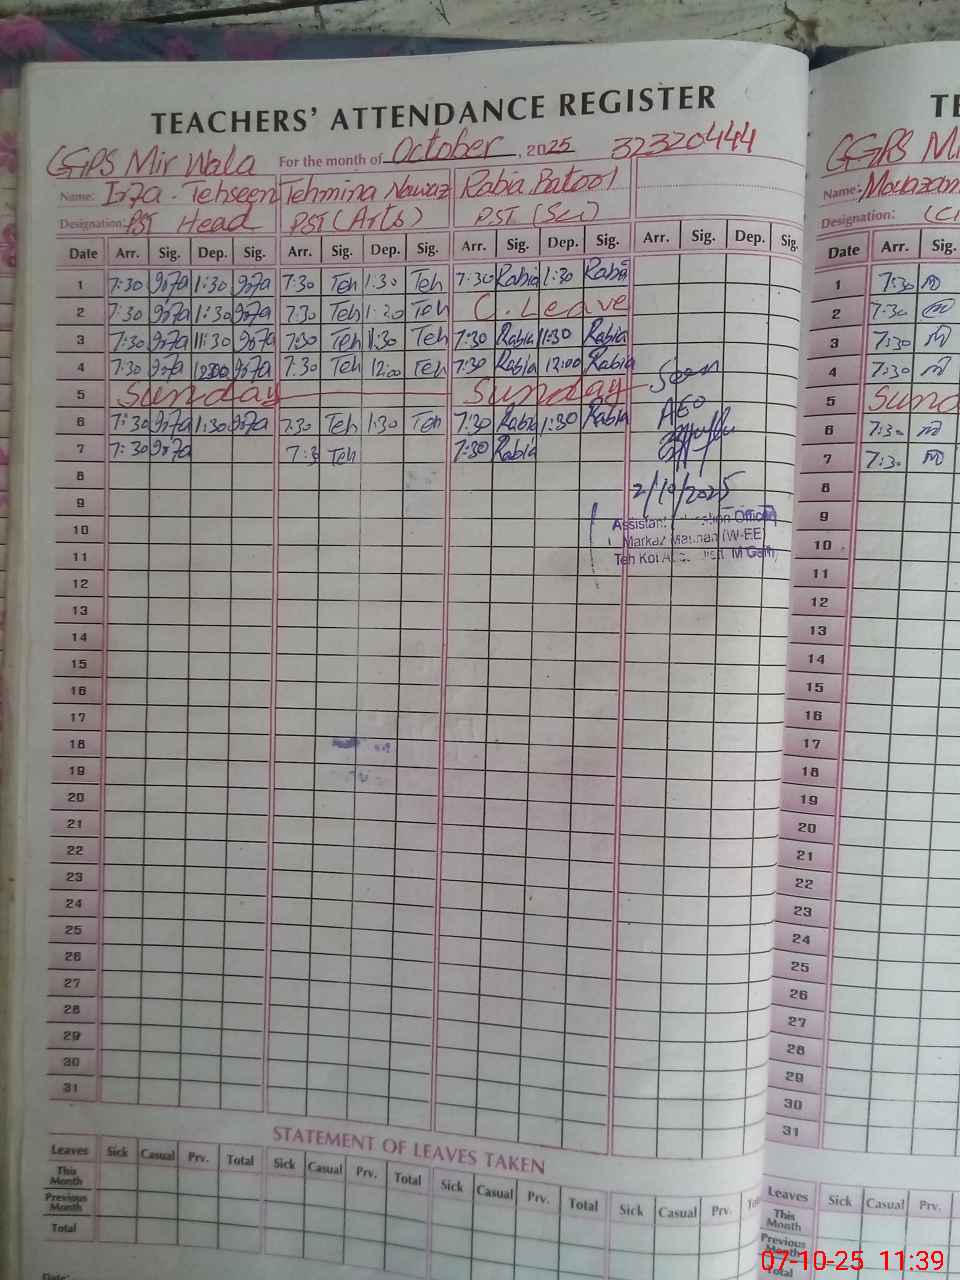 TEACHERS' ATTENDANCE REGISTER
GGPS Mir Wala For the month of October, 2025 32320444
Name: Irza Tehseen Tehmina Nawaz Rabia Batool
Designation: PST Head PST (Arts) PST (Sci)
Date Arr. Sig. Dep. Sig. Arr. Sig. Dep. Sig. Arr. Sig. Dep. Sig. Arr. Sig. Dep. Sig.
1 7:30 Irza 1:30 Irza 7:30 Teh 1:30 Teh 7:30 Rabia 1:30 Rabia
2 7:30 Irza 1:30 Irza 7:30 Teh 1:30 Teh C. Leave
3 7:30 Irza 11:30 Irza 7:30 Teh 11:30 Teh 7:30 Rabia 11:30 Rabia
4 7:30 Irza 12:00 Irza 7:30 Teh 12:00 Teh 7:30 Rabia 12:00 Rabia Seen
5 Sunday Sunday
6 7:30 Irza 1:30 Irza 7:30 Teh 1:30 Teh 7:30 Rabia 1:30 Rabia AEO
7 7:30 Irza 7:3 Teh 7:30 Rabia
8
2/10/2025
9
Assistant Officer
10
Markaz (W-EE)
11
Teh Kot M Garh
12
13
14
15
16
17
18
19
20
21
22
23
24
25
26
27
28
29
30
31
STATEMENT OF LEAVES TAKEN
Leaves Sick Casual Prv. Total Sick Casual Prv. Total Sick Casual Prv. Total Sick Casual Prv.
This Month
Previous Month
Total
Date:
TE
GGPS Mi
Name: Mouazam
Designation:
Date Arr. Sig.
1 7:30
2 7:30
3 7:30
4 7:30
5 Sund
6 7:30
7 7:30
8
9
10
11
12
13
14
15
16
17
18
19
20
21
22
23
24
25
26
27
28
29
30
31
Leaves Sick Casual Prv.
This Month
Previous Month
Total
07-10-25 11:39